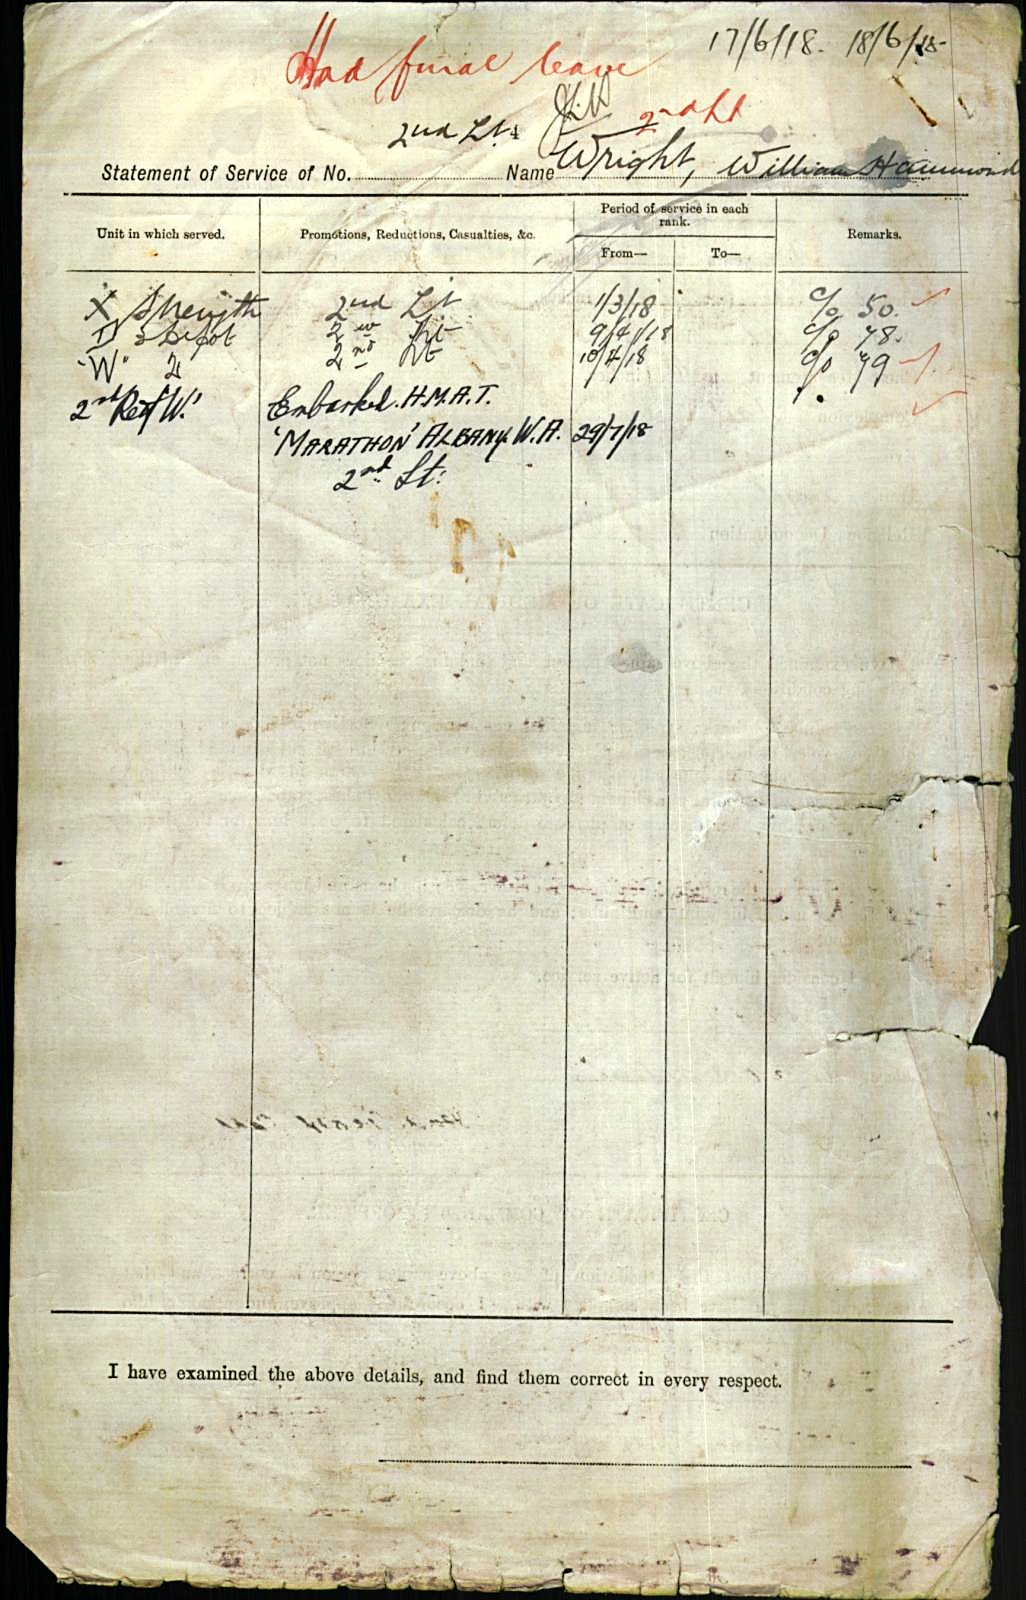 17/6/18. 18/6/18
Had final leave
2nd Lt. 4 2nd Lt
Statement of Service of No. Name Wright, William Hammond
Unit in which served. Promotions, Reductions, Casualties, &c. Period of service in each rank. Remarks.
From— To—
X Strength 2nd Lt 1/3/18 C/o 50.
D 3 Depot 2nd Lt 9/4/18 C/o 78.
"W" 2 2nd Lt 10/4/18 C/o 79
2nd Ref W. Embarked. H.M.A.T.
'MARATHON' ALBANY W.A. 29/7/18
2nd Lt.
I have examined the above details, and find them correct in every respect.